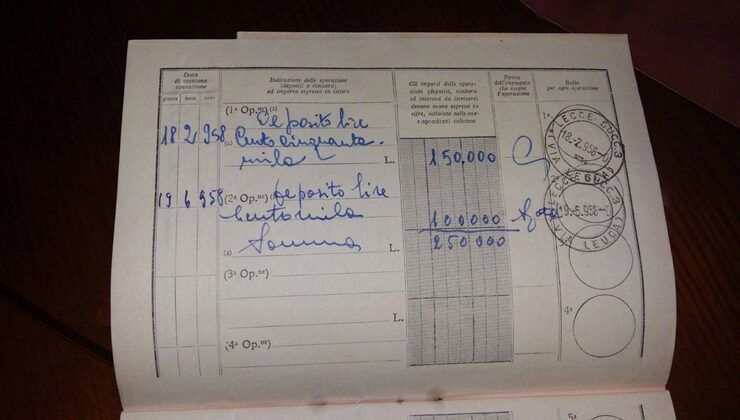 Data
di ciascuna
operazione
giorno mese anno
Indicazione delle operazioni
(depositi e rimborsi)
ed importo espresso in lettere
Gli importi delle opera-
zioni (depositi, rimborsi
ed interessi da iscrivere)
devono essere espressi in
cifre, collocate nelle cor-
rispondenti colonne
Firma
dell'impiegato
che esegue
l'operazione
Bollo
per ogni operazione
(1ª Op.ne) Deposito lire
18 2 958 Cento cinquanta
mila L. 150.000
1ª
LECCE SUCC. 3
(VIA LEUCA)
18.-2.958
19 6 958 (2ª Op.ne) Deposito lire
Centomila 100000
LECCE SUCC. 3
(VIA LEUCA)
19.-6.958
(a) Somma L. 250000
(3ª Op.ne)
L.
(4ª Op.ne)
4ª
5ª